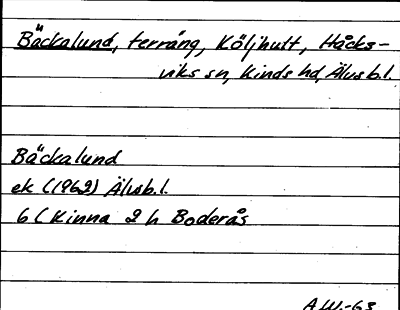 Bäckalund, terräng, Köljhult, Håcks-
viks sn, Kinds hd, Älvsb. l.
Bäckalund
ek (1962) Älvsb. l.
6 C Kinna 2 h Boderås
A.W.-63